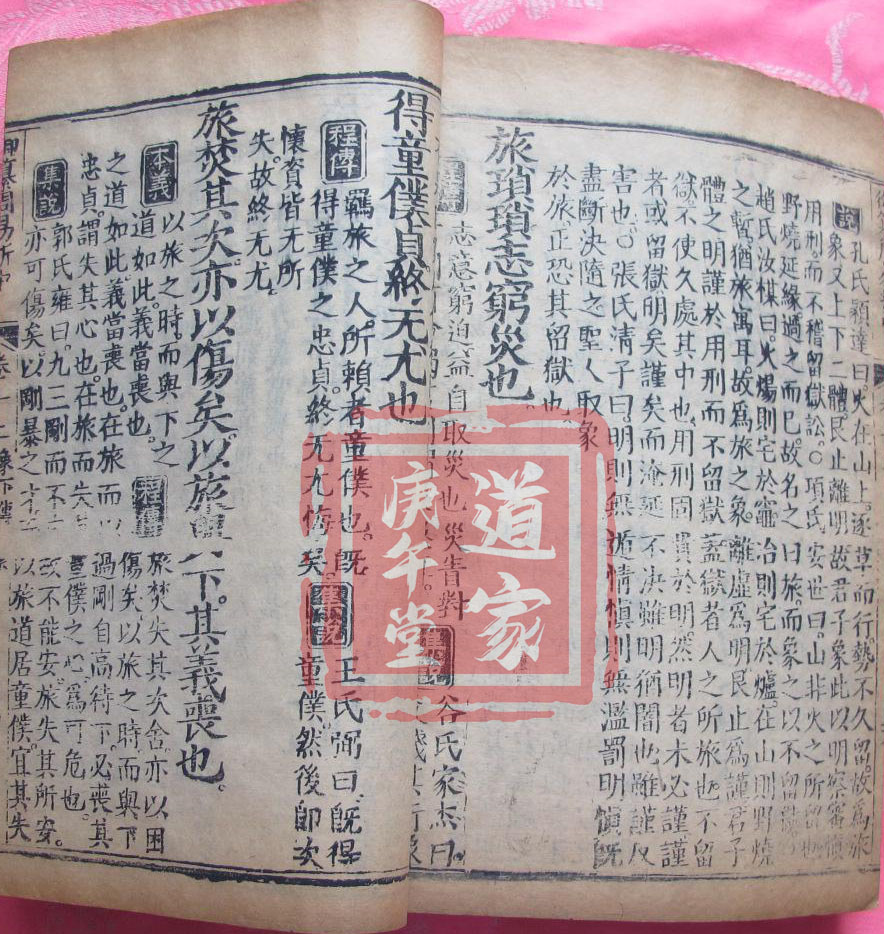 說 孔氏穎達曰。火在山上。逐草而行。勢不久留。故爲旅
象又上下二體。艮止離明。故君子象此以明察審慎
用刑。而不稽留獄訟。○項氏安世曰。山非火之所留也
野燒延緣。過之而已。故名之曰旅。而象之以不留
趙氏汝楳曰。火煬則宅於竈。冶則宅於爐。在山則野燒
之暫。猶旅寓耳。故爲旅之象。離虛爲明。艮止爲謹。君子
體之明謹於用刑。而不留獄。蓋獄者人之所旅也。不留
獄。不使久處其中也。用刑固貴於明。然明者未必謹。謹
者或留獄。明矣謹矣。而淹延不決。雖明猶闇也。雖謹反
害也。○張氏清子曰。明則無遁情。慎則無濫罰。明慎既
盡。斷決隨之。聖人取象
於旅。正恐其留獄也。
旅瑣瑣志窮災也。
志意窮迫益自取災也災眚對
谷氏家杰曰
得童僕貞終无尤也
程傳 羈旅之人。所賴者童僕也。既
得童僕之忠貞。終无尤悔矣。
集說 王氏弼曰。既得
童僕。然後即次
懷資皆无所
失。故終无尤。
旅焚其次。亦以傷矣。以旅與下。其義喪也。
本義 以旅之時。而與下之
道如此。義當喪也。
程傳 旅焚失其次舍。亦以困
傷矣。以旅之時。而與下
之道如此。義當喪也。在旅而以
過剛自高待下。必喪其
忠貞。謂失其心也。在旅而失其
童僕之心。爲可危也。
集說 郭氏雍曰。九三剛而不中
故不能安旅。失其所安。
亦可傷矣。以剛暴之
以旅道居童僕。宜其失
道家
庚午堂